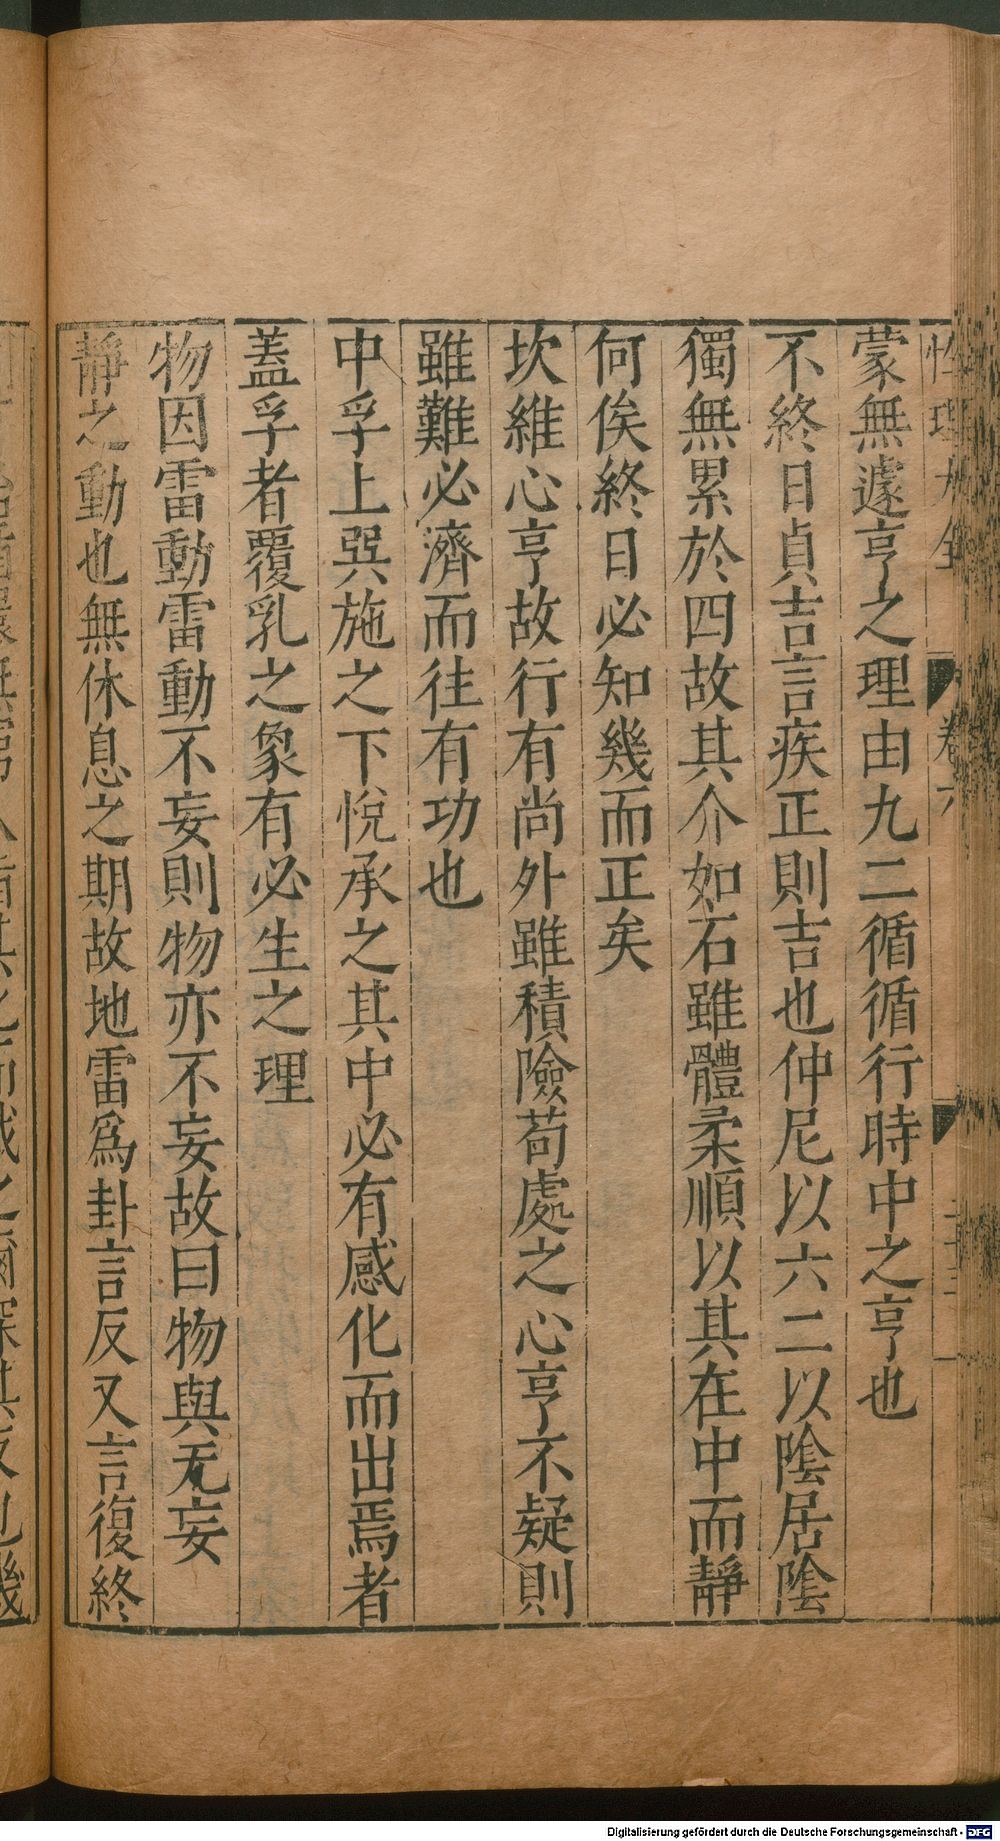 性理大全
卷六
蒙無遽亨之理由九二循循行時中之亨也
不終日貞吉言疾正則吉也仲尼以六二以陰居陰
獨無累於四故其介如石雖體柔順以其在中而靜
何俟終日必知幾而正矣
坎維心亨故行有尚外雖積險苟處之心亨不疑則
雖難必濟而往有功也
中孚上巽施之下悅承之其中必有感化而出焉者
蓋孚者覆乳之象有必生之理
物因雷動雷動不妄則物亦不妄故曰物與无妄
靜之動也無休息之期故地雷爲卦言反又言復終
Digitalisierung gefördert durch die Deutsche Forschungsgemeinschaft - DFG